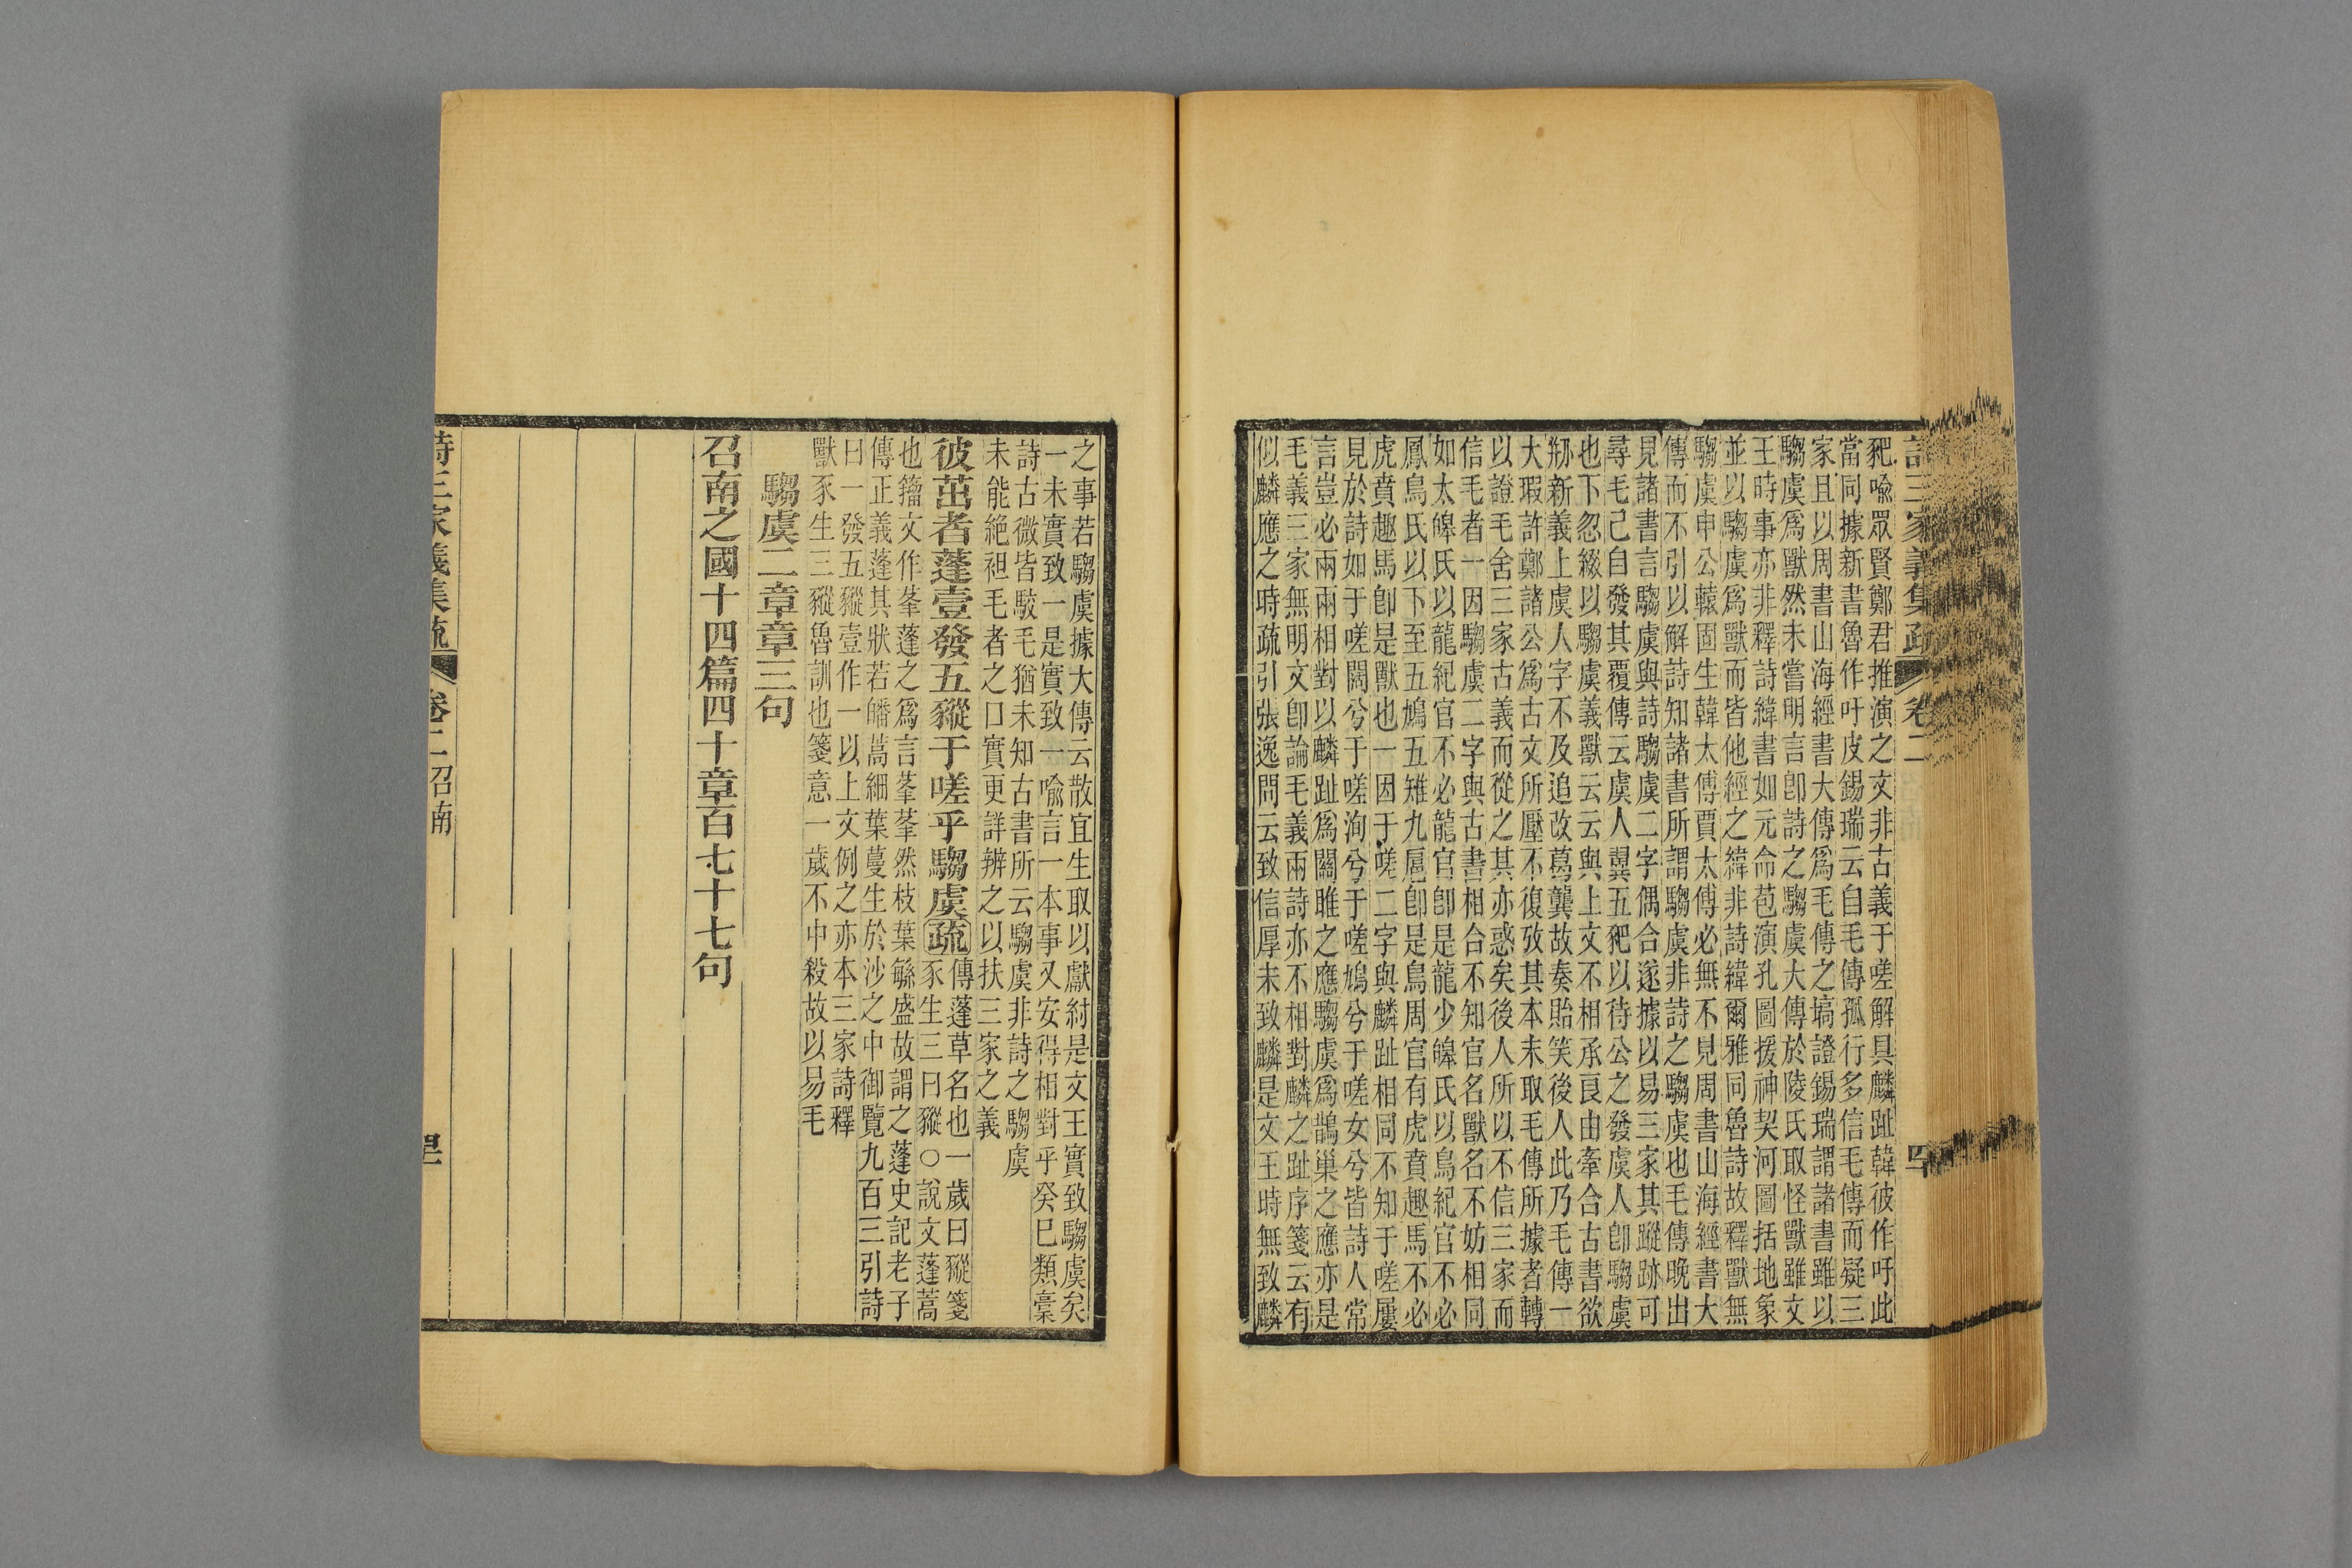 詩三家義集疏 卷二
豝喻眾賢鄭君推演之文非古義于嗟解具麟趾韓彼作吁此
當同據新書魯作吁皮錫瑞云自毛傳孤行多信毛傳而疑三
家且以周書山海經書大傳爲毛傳之塙證錫瑞謂諸書雖以
騶虞爲獸然未嘗明言卽詩之騶虞大傳於陵氏取怪獸雖文
王時事亦非釋詩緯書如元命苞演孔圖援神契河圖括地象
並以騶虞爲獸而皆他經之緯非詩緯爾雅同魯詩故釋獸無
騶虞申公轅固生韓太傅賈太傅必無不見周書山海經書大
傳而不引以解詩知諸書所謂騶虞非詩之騶虞也毛傳晚出
見諸書言騶虞與詩騶虞二字偶合遂據以易三家其蹤跡可
尋毛己自發其覆傳云虞人翼五豝以待公之發虞人卽騶虞
也下忽綴以騶虞義獸云云與上文不相承良由牽合古書欲
剏新義上虞人字不及追改葛龔故奏貽笑後人此乃毛傳一
大瑕許鄭諸公爲古文所壓不復攷其本未取毛傳所據者轉
以證毛舍三家古義而從之其亦惑矣後人所以不信三家而
信毛者一因騶虞二字與古書相合不知官名獸名不妨相同
如太皞氏以龍紀官不必龍官卽是龍少皞氏以鳥紀官不必
鳳鳥氏以下至五鳩五雉九扈卽是鳥周官有虎賁趣馬不必
虎賁趣馬卽是獸也一因于嗟二字與麟趾相同不知于嗟屢
見於詩如于嗟闊兮于嗟洵兮于嗟鳩兮于嗟女兮皆詩人常
言豈必兩兩相對以麟趾爲關雎之應騶虞爲鵲巢之應亦是
毛義三家無明文卽論毛義兩詩亦不相對麟之趾序箋云有
似麟應之時疏引張逸問云致信厚未致麟是文王時無致麟
之事若騶虞據大傳云散宜生取以獻紂是文王實致騶虞矣
一未實致一是實致一喻言一本事又安得相對乎癸巳類稾
詩古微皆駮毛猶未知古書所云騶虞非詩之騶虞
未能絕袒毛者之口實更詳辨之以扶三家之義
彼茁者蓬壹發五豵于嗟乎騶虞疏
傳蓬草名也一歲曰豵箋
豕生三曰豵○說文蓬蒿
也籀文作莑蓬之爲言莑莑然枝葉緐盛故謂之蓬史記老子
傳正義蓬其狀若皤蒿細葉蔓生於沙之中御覽九百三引詩
曰一發五豵壹作一以上文例之亦本三家詩釋
獸豕生三豵魯訓也箋意一歲不中殺故以易毛
騶虞二章章三句
召南之國十四篇四十章百七十七句
詩三家義集疏 卷二 召南